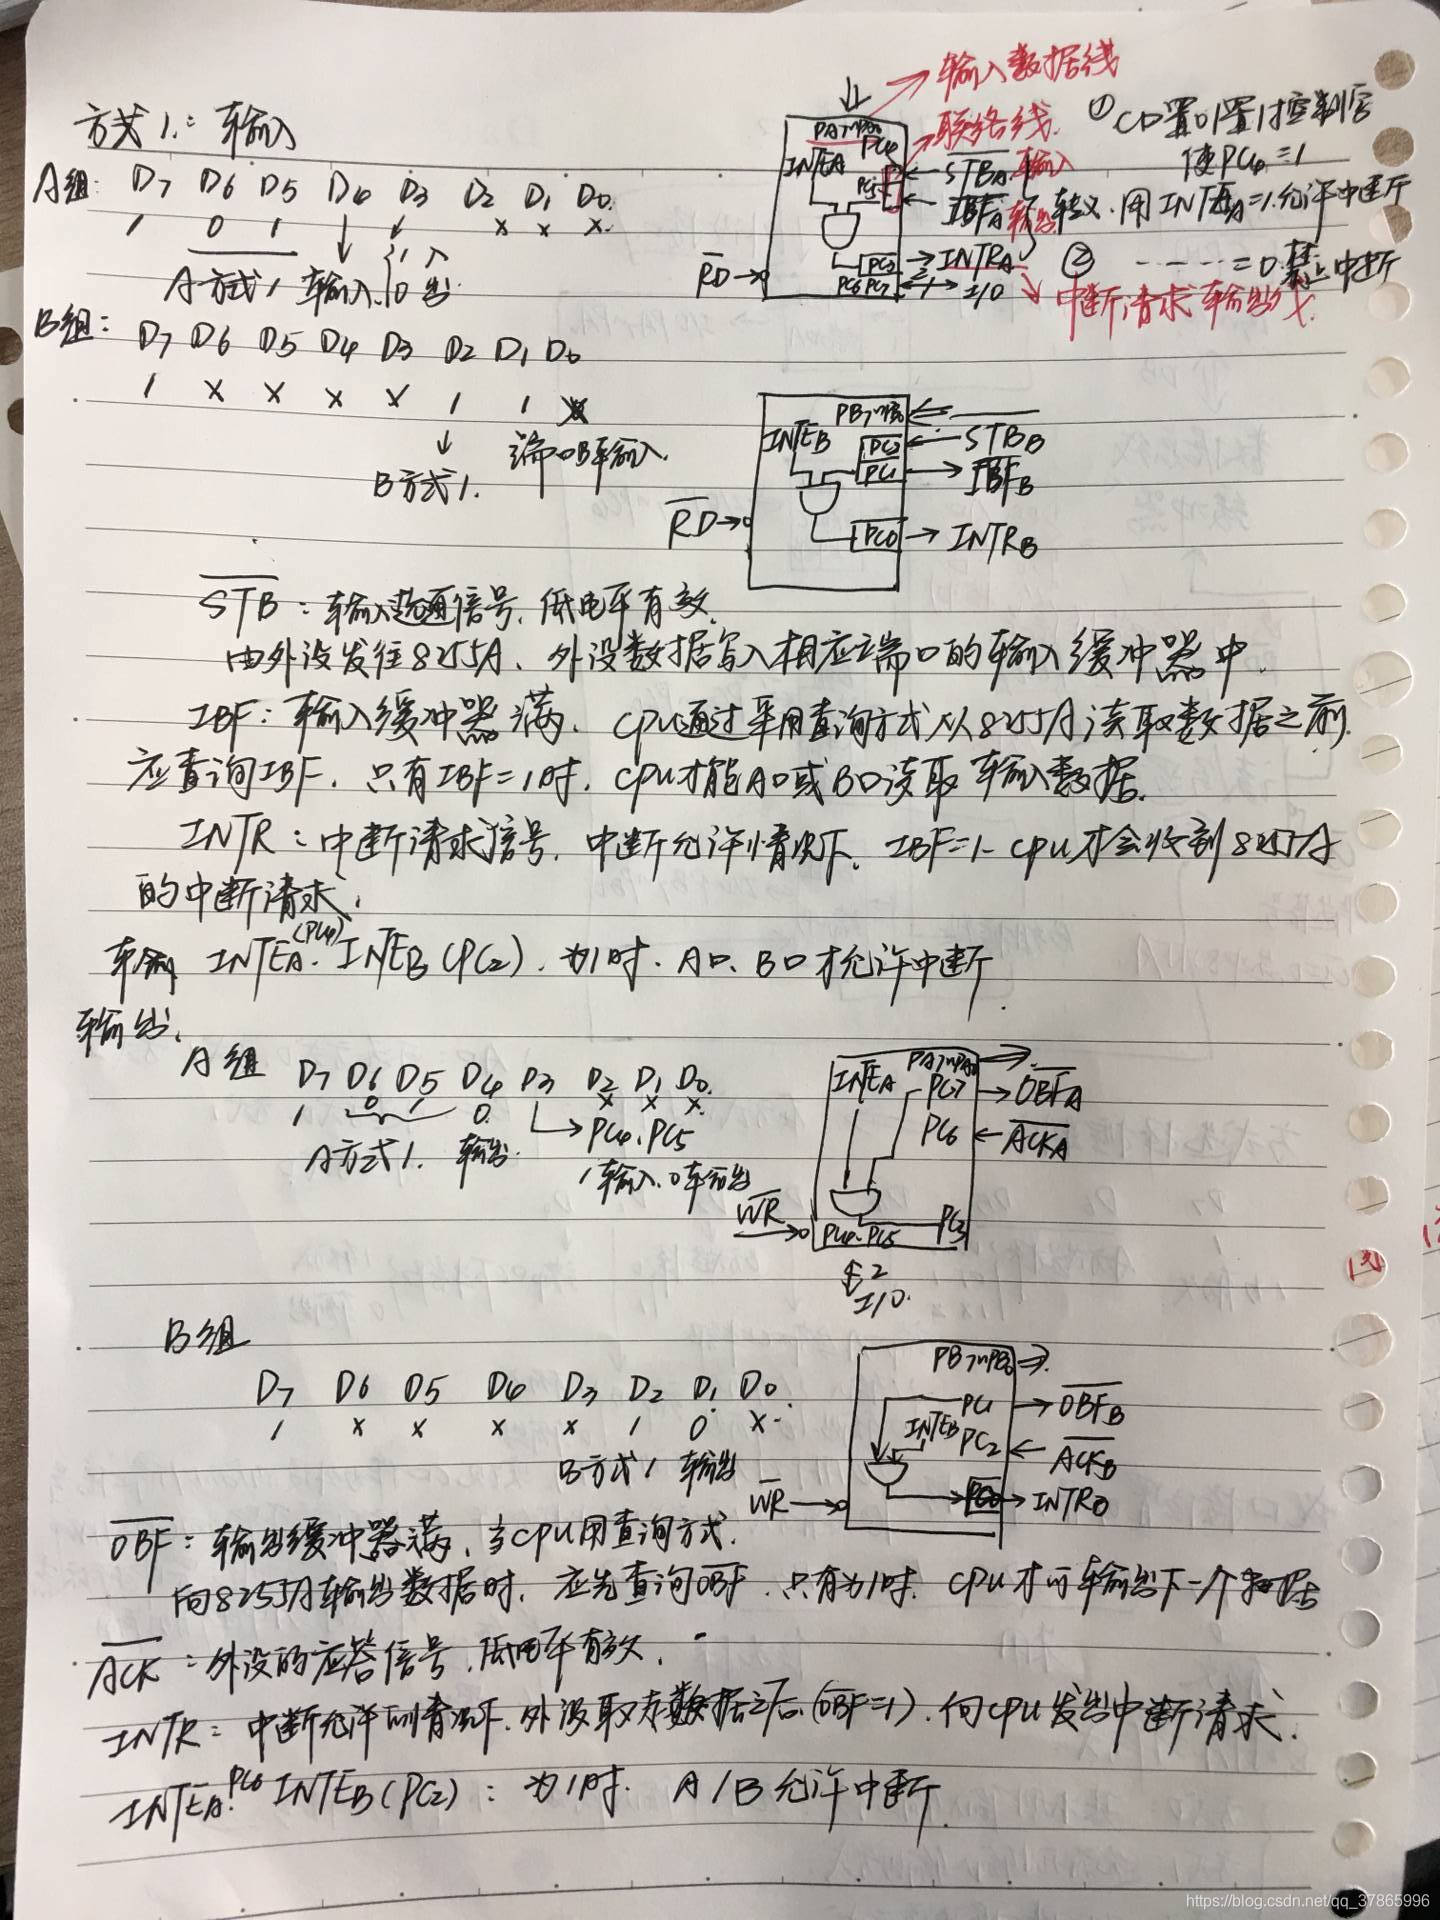 方式1.：输入
A组： D7 D6 D5 D4 D3 D2 D1 D0.
1 0 1 × × ×
A方式1 输入 {1 入
0 出
输入数据线
联络线.
PA7~PA0
INTEA PC4
PC5
STBA 输入
IBFA 输出
PC3 INTRA
PC6 PC7 I/O
RD
中断请求输出线.
① CD置0/置1控制字
使PC4=1
转义.用INTEA=1.允许中断
② ------=0 禁止中断
B组：
D7 D6 D5 D4 D3 D2 D1 D0
1 × × × × 1 1 ×
B方式1. 端口B输入.
PB7~PB0
INTEB PC2 STBB
PC1 IBFB
RD PC0 INTRB
STB：输入选通信号.低电平有效.
由外设发往8255A、外设数据写入相应端口的输入缓冲器中.
IBF：输入缓冲器满. CPU通过采用查询方式从8255A读取数据之前.
应查询IBF. 只有IBF=1时. CPU才能A口或B口读取输入数据.
INTR：中断请求信号. 中断允许情况下. IBF=1- CPU才会收到8255A
的中断请求.
输入 INTEA(PC4). INTEB(PC2). 为1时. A口、B口才允许中断.
输出.
A组 D7 D6 D5 D4 D3 D2 D1 D0.
1 0 1 0. × × ×.
A方式1. 输出. PC4、PC5
1输入.0输出
INTEA PA7~PA0
PC7 OBFA
PC6 ACKA
WR PC4.PC5 PC3
2
I/O.
B组
D7 D6 D5 D4 D3 D2 D1 D0
1 × × × × 1 0 ×
B方式1 输出
PB7~PB0
PC1 OBFB
INTEB PC2 ACKB
WR PC0 INTRB
OBF：输出缓冲器满、当CPU用查询方式.
向8255A输出数据时. 应先查询OBF. 只有为1时. CPU才可输出下一个数据
ACK：外设的应答信号.低电平有效.
INTR：中断允许的情况下.外设取走数据之后(OBF=1).向CPU发出中断请求.
INTEA.PC6 INTEB(PC2)：为1时. A/B允许中断.
https://blog.csdn.net/qq_37865996